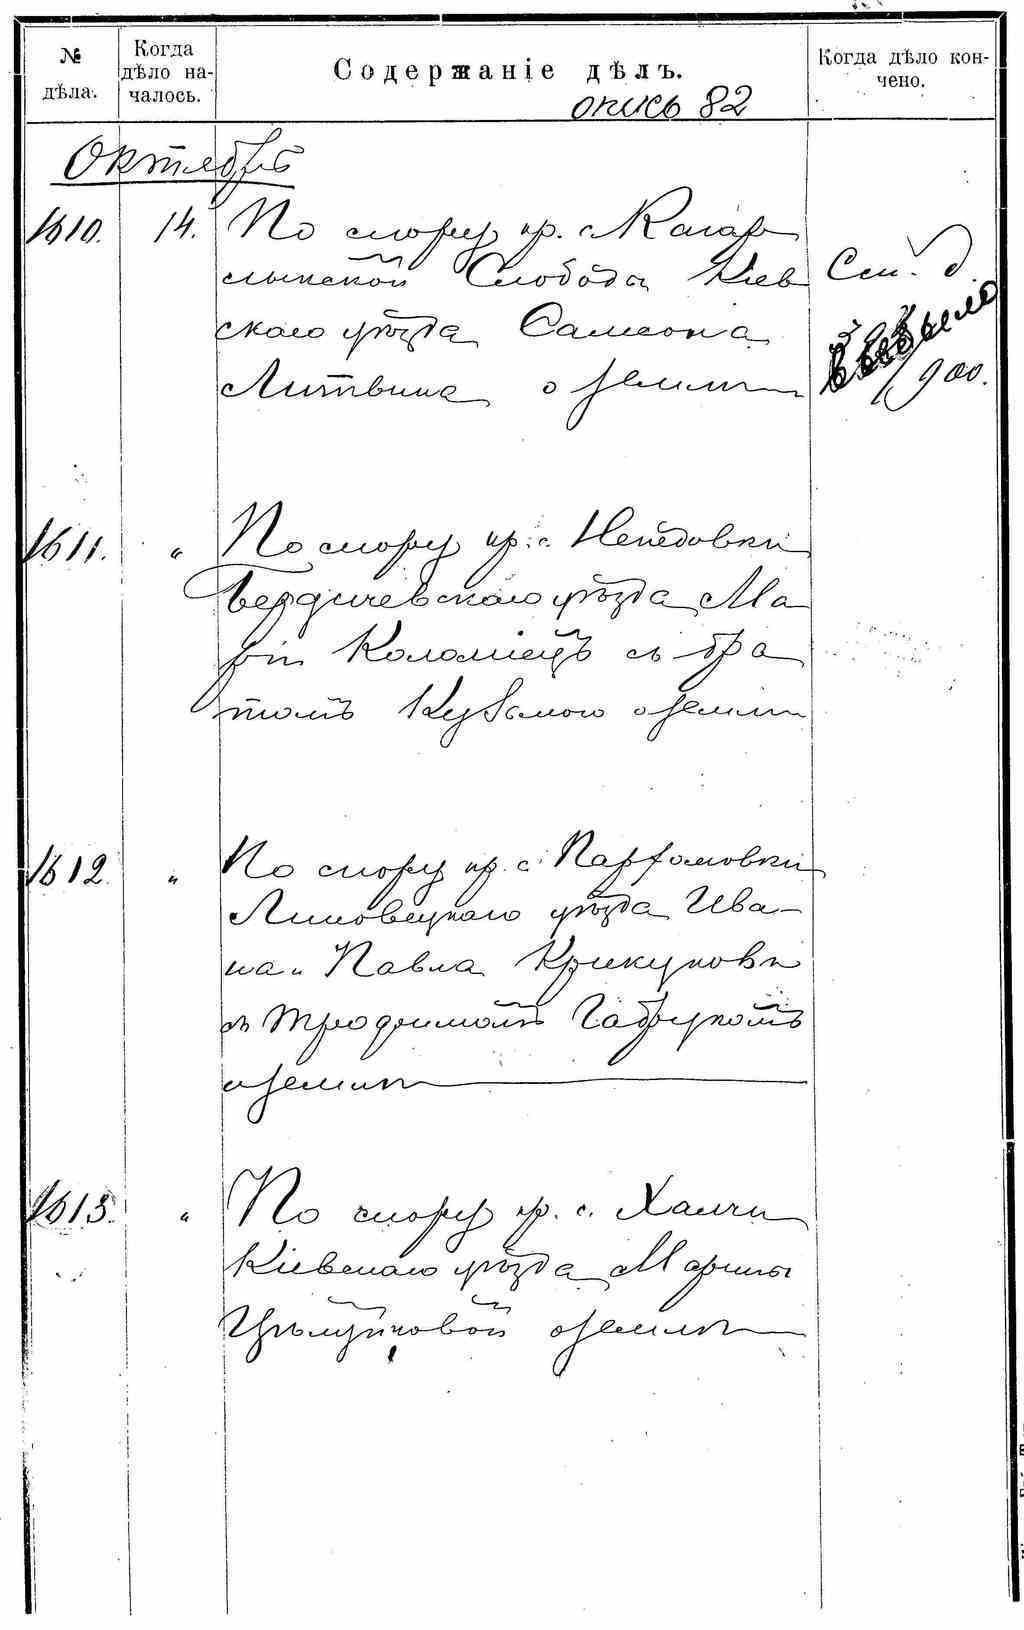 № дѣла.
Когда дѣло на-
чалось.
Содержаніе дѣлъ.
Когда дѣло кон-
чено.
опись 82
Октябрь
1610. 14. По спору кр. с. Кагар
лыкской Слободы Кіев
скаго уѣзда Самсона
Литвина о землѣ
Сен. д.
выбыло
1900.
1611. " По спору кр. с. Непедовки
Бердичевскаго уѣзда Ма
ріи Коломіецъ съ бра
томъ Кузьмою о землѣ
1612 " По спору кр. с. Парфомовки
Липовецкаго уѣзда Ива-
на и Павла Крикуновъ
съ Трофимомъ Габрукомъ
о землѣ
1613. " По спору кр. с. Халчи
Кіевскаго уѣзда Марины
о землѣ